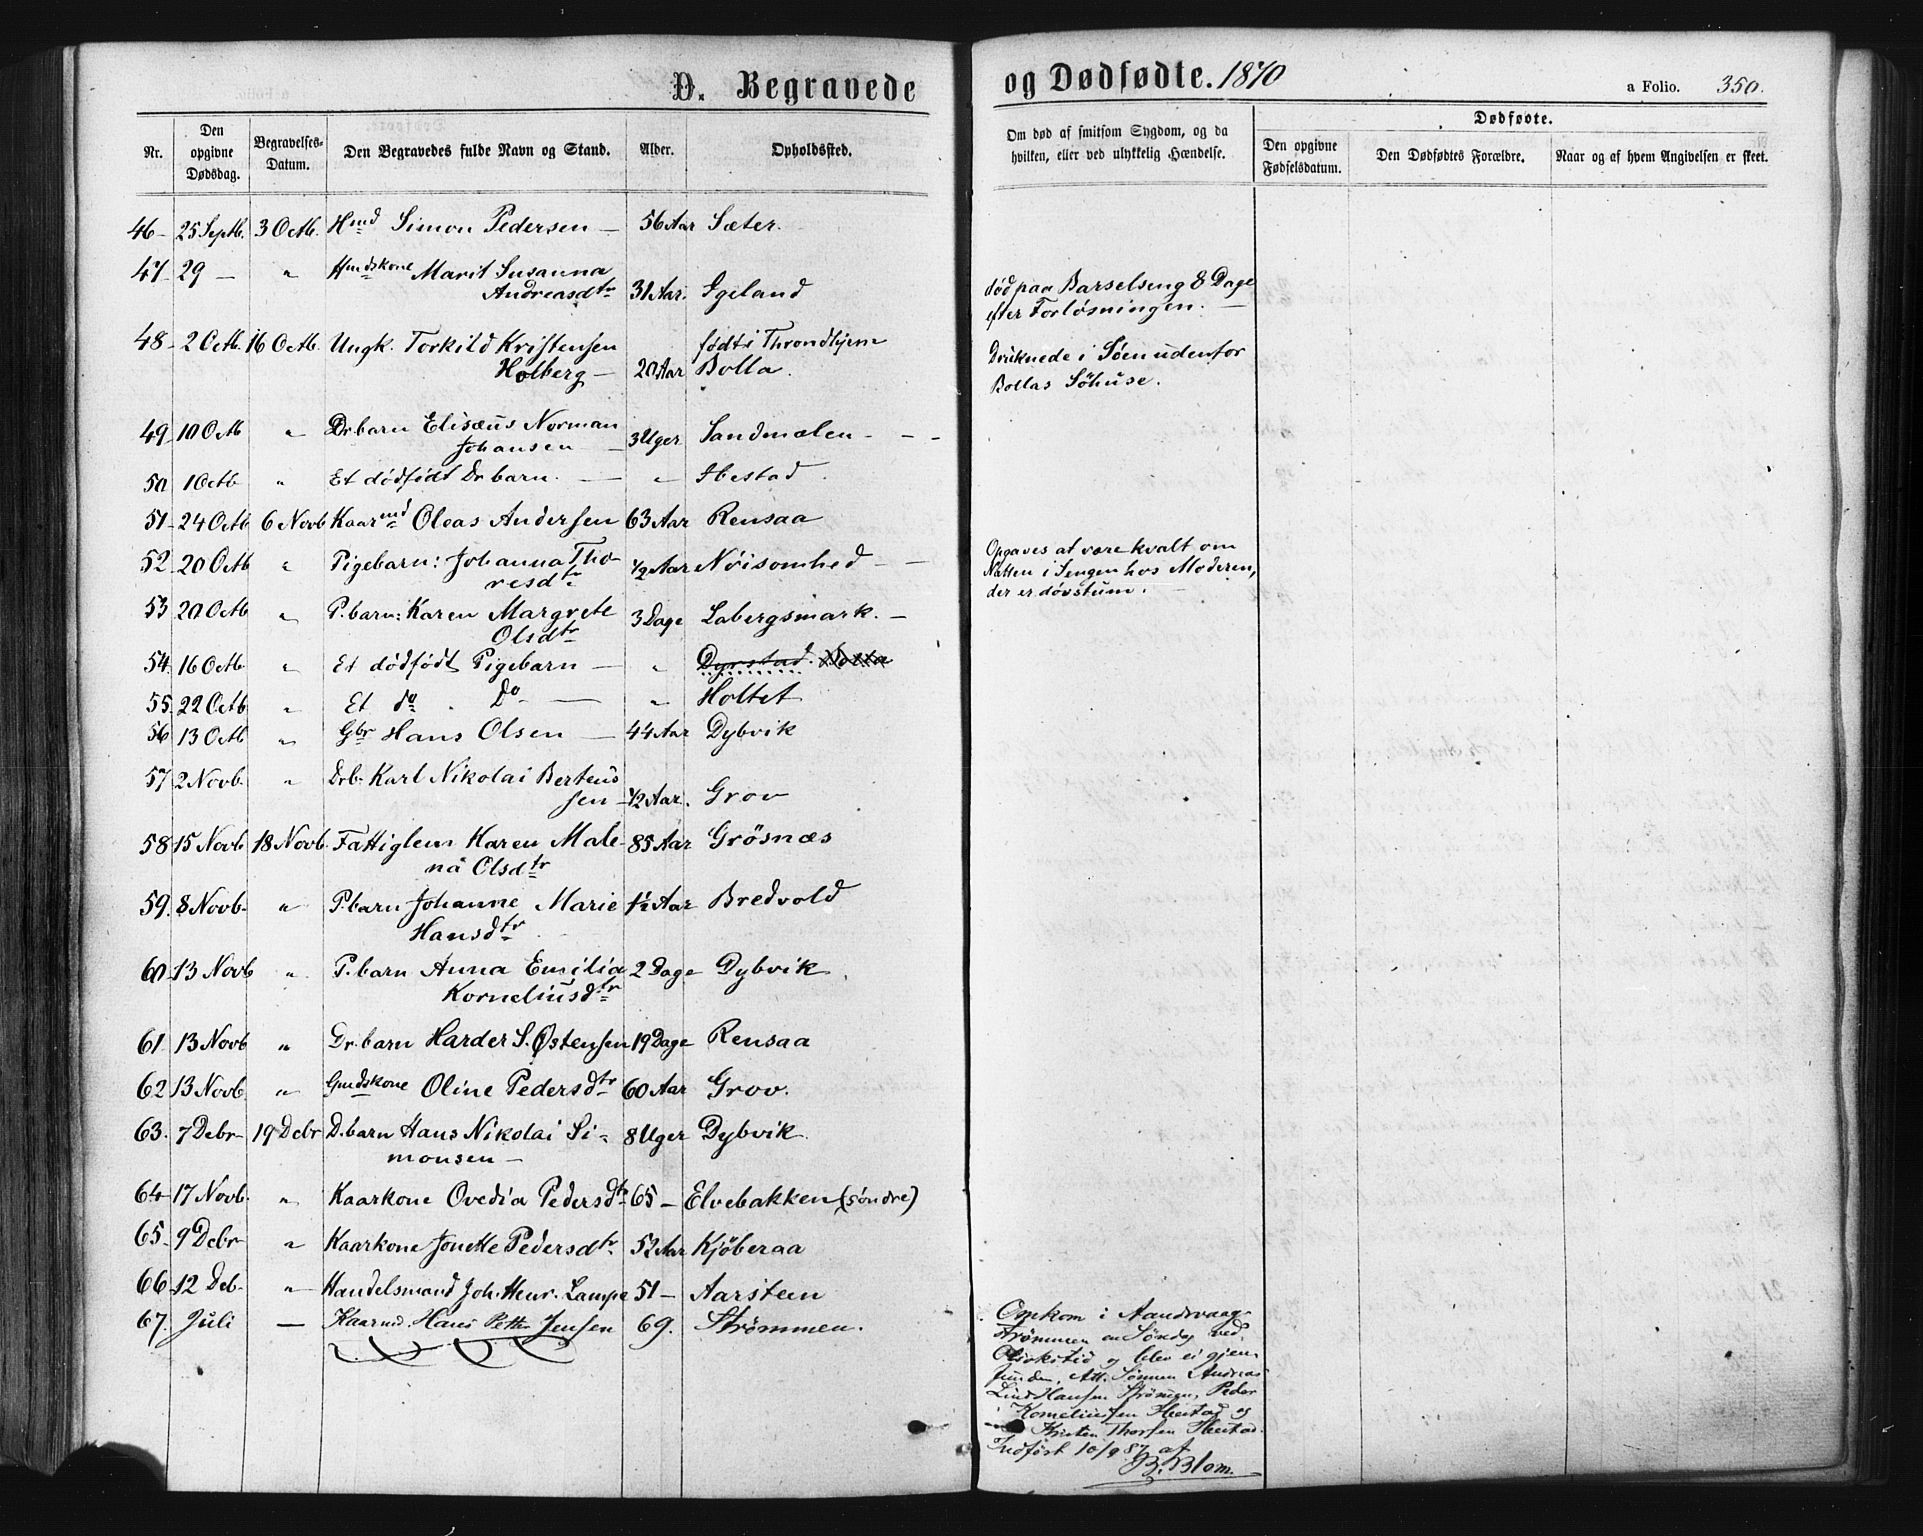 D. Begravede og Dødfødte. 1870 a Folio. 350.
Nr. Den opgivne Dødsdag. Begravelses-Datum. Den Begravedes fulde Navn og Stand. Alder. Opholdssted. Om død af smitsom Sygdom, og da hvilken, eller ved ulykkelig Hændelse. Dødfødte.
Den opgivne Fødselsdatum. Den Dødfødtes Forældre. Naar og af hvem Angivelsen er skeet.
46 - 25 Septb. 3 Octb. Hmd Simon Pedersen - 56 Aar Sæter.
47 29 - " Hmdskone Marit Susanna
Andreasdtr 31 Aar. Igeland død paa Barselseng 8 Dage
efter Forløsningen. -
48 - 2 Octb. 16 Octb. Ungk. Torkild Kristensen født i Throndhjem
Holberg - 20 Aar Bolla. Druknede i Søen udenfor
Bollas Söhuse.
49 10 Octb " Drbarn Elisæus Norman
Johansen - 3 Uger Sandmælen - - -
50 1 Octb " Et dødfødt Drbarn. - " Ibestad
51 - 24 Octb 6 Novb Kaarmd Oleas Andersen 63 Aar Rensaa
52 - 20 Octb " Pigebarn: Johanna Tho-
resdtr 1/2 Aar Nöisomhed - - Opgaves at være kvalt om
Natten i Sengen hos Moderen,
der er døvstum. -
53 20 Octb " P.barn: Karen Margrete
Olsdtr 3 Dage Labergsmark. -
54 - 16 Octb " Et dödfödt Pigebarn - " Dyrstad.
55. 22 Octb " Et do. Do - " Holtet
56 13 Octb " Gbr Hans Olsen - 44 Aar Dybvik
57 2 Novb. " Drb. Karl Nikolai Bertens
sen - 1/2 Aar. Grov
58 15 Novb 18 Novb. Fattiglem Karen Male-
na Olsdtr 85 Aar Grösnæs
59. 8 Novb. " P.barn Johanne Marie 1 1/2 Aar Bredvold
Hansdtr
60 13 Novb " P.barn Anna Emilia 2 Dage Dybvik.
Korneliusdtr
61. 13 Novb " Dr.barn Harder S. Østensen 19 Dage Rensaa
62 13 Novb. " Gmdskone Oline Pedersdtr 60 Aar Grov.
63. 7 Debr 19 Debr D.barn Hans Nikolai Si- 8 Uger Dybvik.
monsen -
64 17 Novb. " Kaarkone Ovedia Pedersdtr 65 - Elvebakken (söndre)
65. 9 Debr " Kaarkone Jonette Pedersdtr. 52 Aar Kjöberaa
66 12 Deb. " Handelsmand Joh. Henr. Lampe 51 - Aarsteen
67. Juli - Kaarmd. Hans Petter Jensen 69. Strömmen.
Omkom i Aandsvaag-
strømmen en Søndg ved
Otiokstid og blev ei gjen-
funden. Att. Sønnen Andreas
Lind Hansen Strömmen, Peder
Korneliussen Ibestad og
Kristen Thorsen Ibestad.
Indført 10/9 87 af
B. Blom.